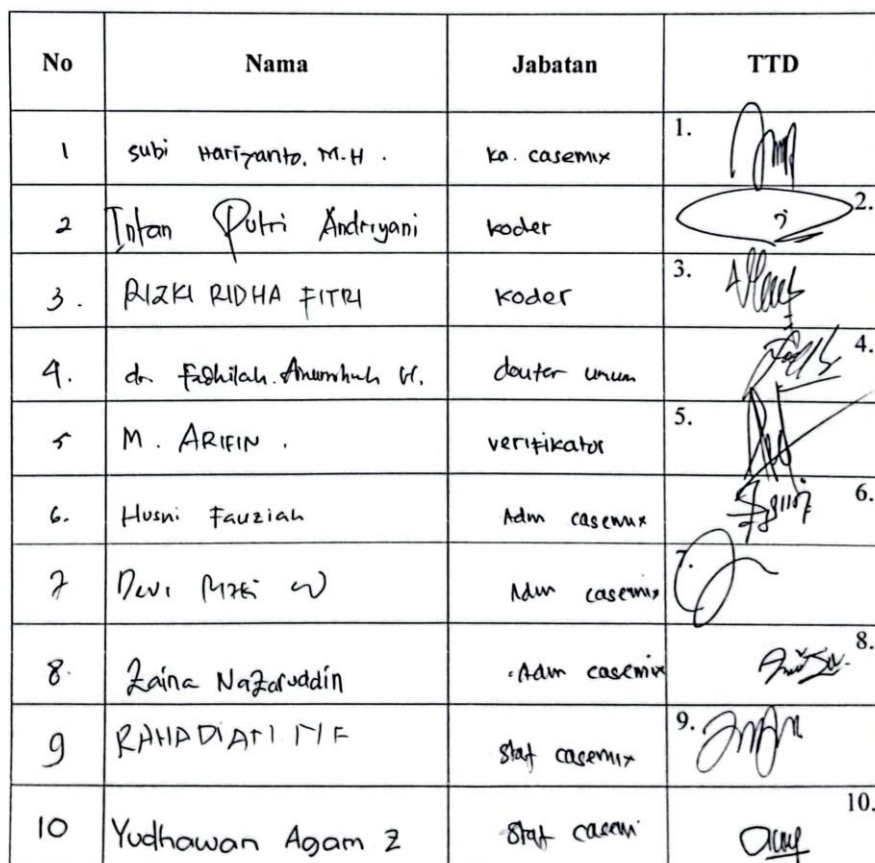 No Nama Jabatan TTD
1 Subi Hariyanto. M.H. ka. casemix 1.
2 Intan Putri Andriyani koder 2.
3. RIZKI RIDHA FITRI koder 3.
4. dr. Fadhilah. H. dokter umum 4.
5 M. ARIFIN. verifikator 5.
6. Husni Fauziah Adm casemix 6.
7 Devi Adm casemix 7.
8. Zaina Nazaruddin Adm casemix 8.
9 staf casemix 9.
10 Yudhawan Agam Z staf casemi 10.